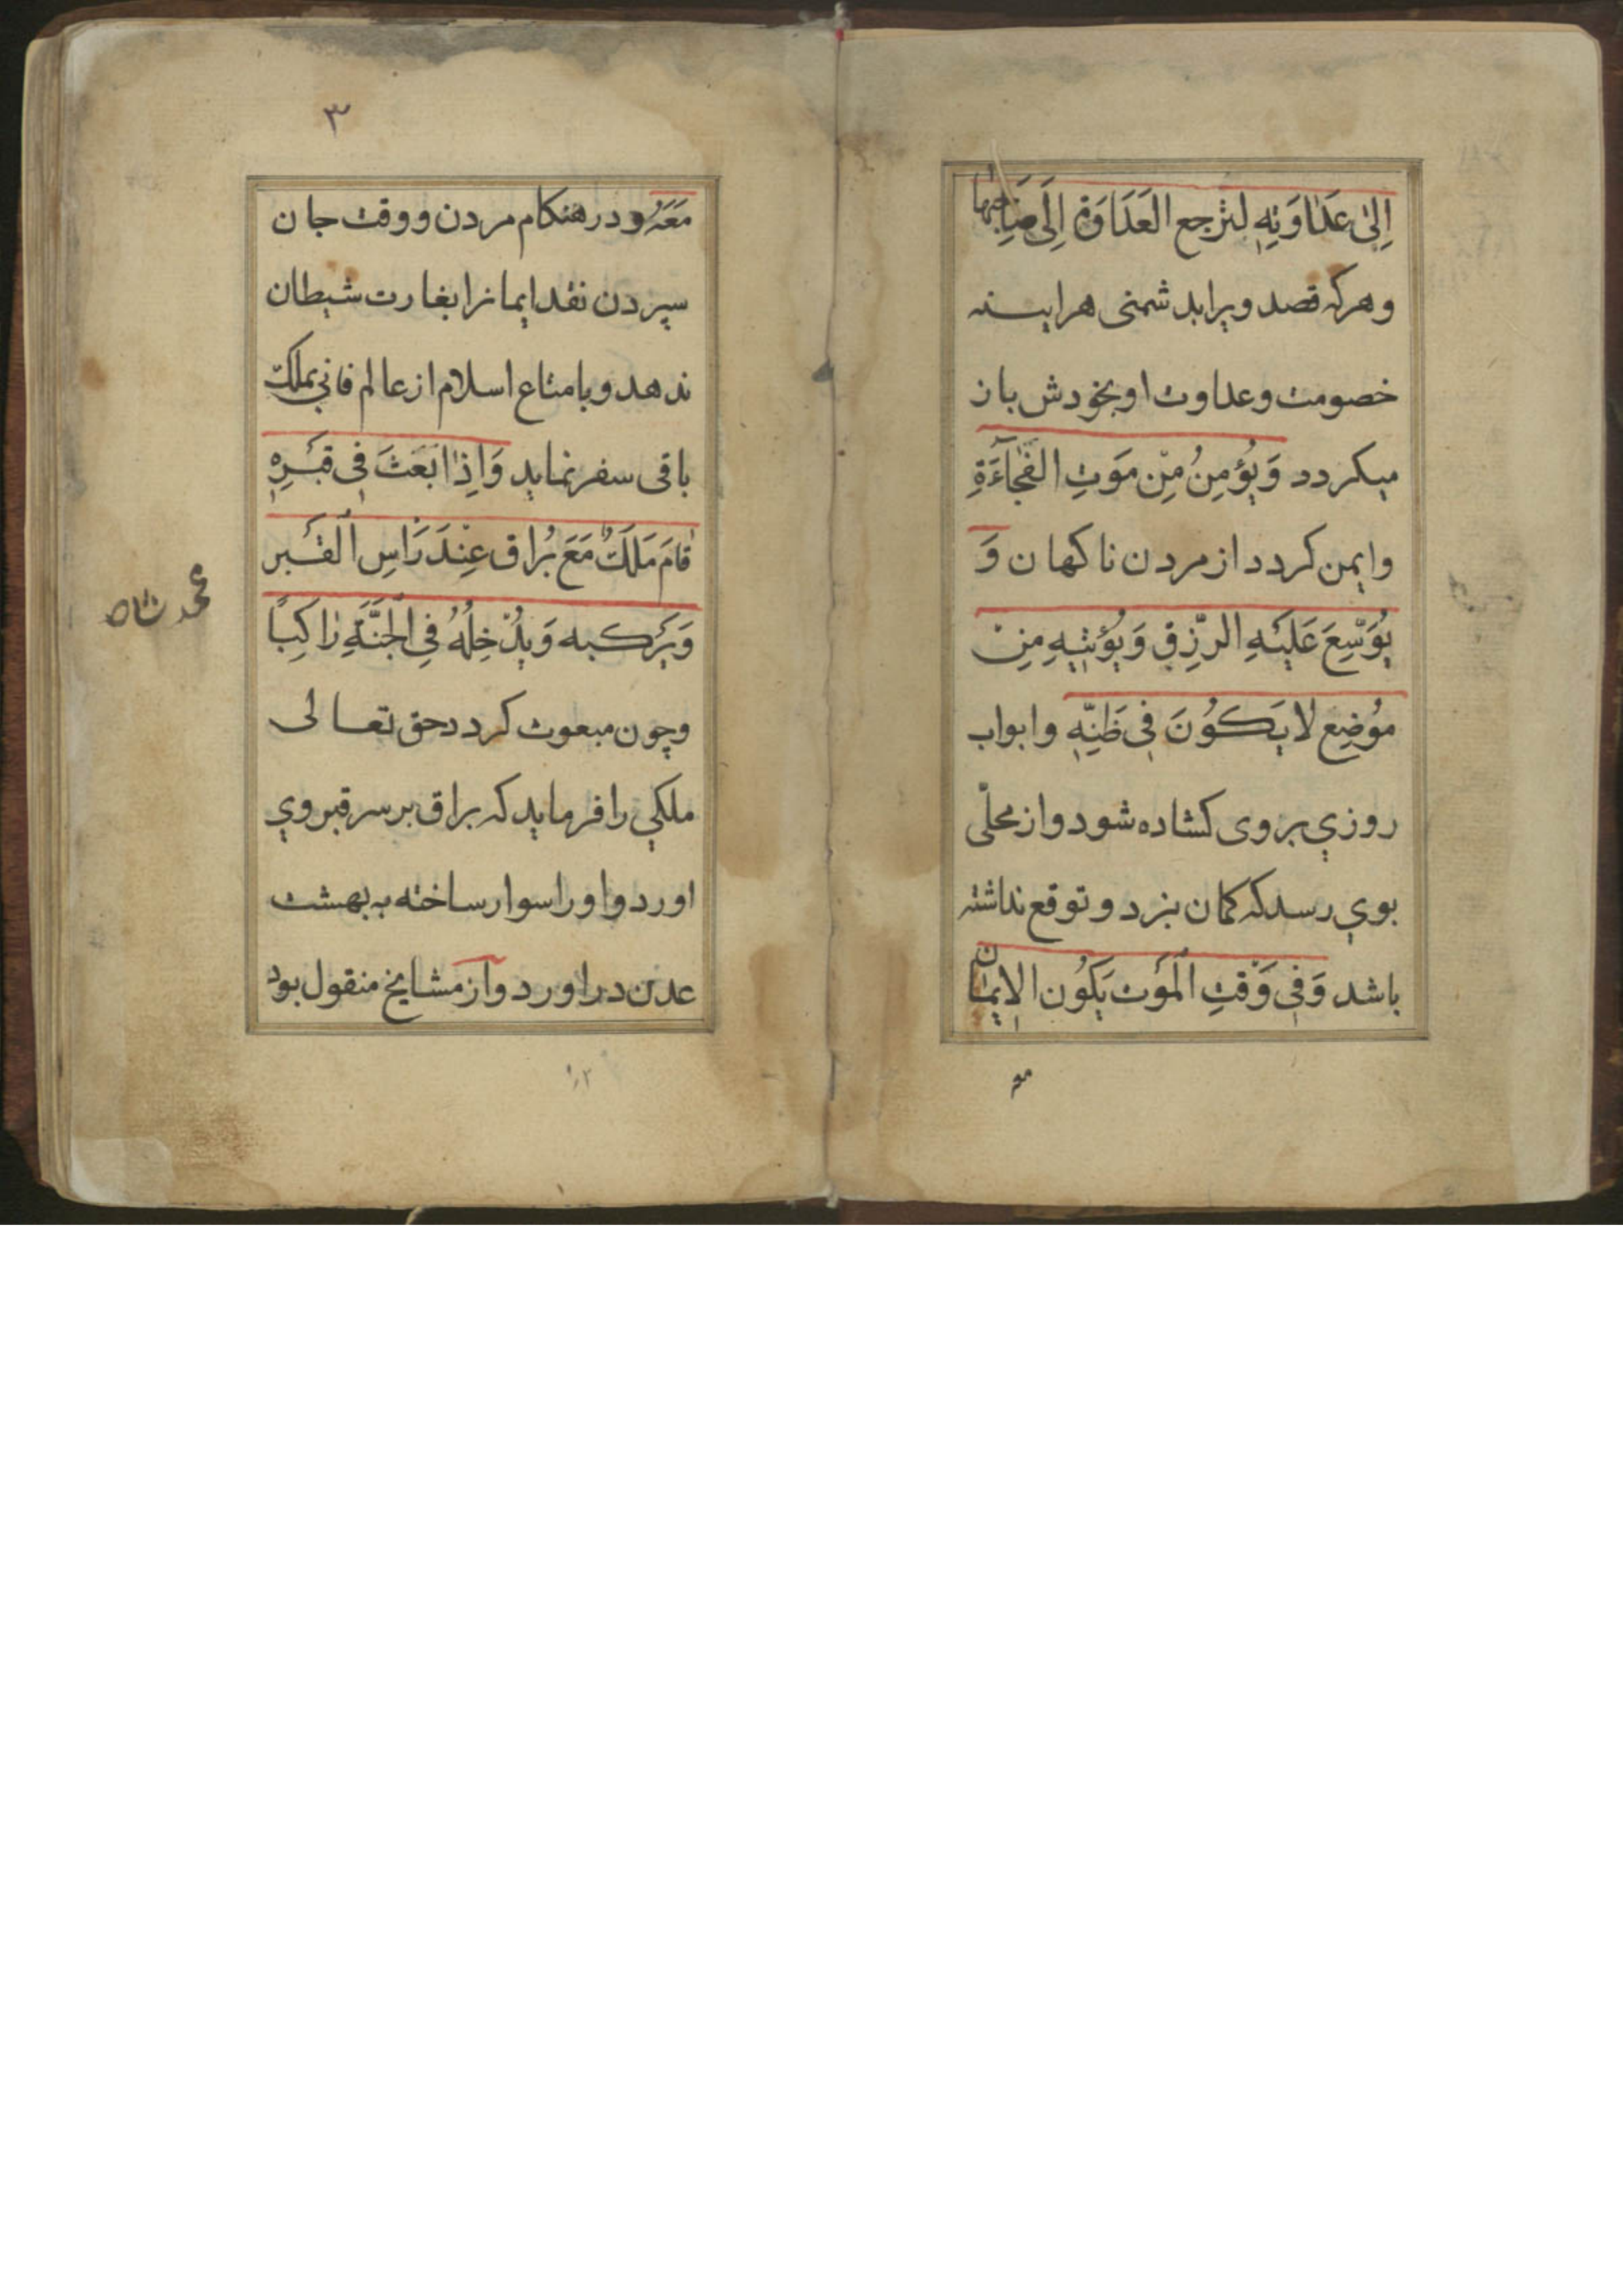 اِلیٰ عَدَاوَتِهِ لترجع العَدَاوَة اِلَی صَاحِبِهَا
وهرکه قصد ویرا بد شمنی هراینه
خصومت وعداوت او بخودش باز
میکردد وَیُؤمِنُ مِنْ مَوَتِ الفُجَاءَةِ
وایمن کردد از مردن ناکهان وَ
یُوَسِّعَ عَلَیهِ الرِّزقِ وَیُؤتِیهِ مِنْ
مُوضِعِ لا یَکُونَ فِی ظَنِّهِ وابواب
روزي بروی کشاده شود واز محلّی
بوي رسد که کمان نبرد وتوقع نداشته
باشد وَفِی وَقْتِ الْمَوْت یَکُون الایمَان
معه
۳
مَعَهُ ودر هنکام مردن ووقت جان
سپردن نقد ایمانرا بغارت شیطان
ندهد وبامتاع اسلام از عالم فاني بملکت
باقی سفر نماید وَاِذَا بَعَثَ فِی قَبْرِهِ
قَامَ مَلَکٌ مَعَ بُرَاق عِنْدَ رَاسِ الْقَبْر
وَیَرْکبه وَیُدْخِلُهُ فِی الْجَنَّةِ رَاکِبًا
وچون مبعوث کردد حق تعالی
ملکي را فرماید که براق بر سر قبر وي
اورد واوراسوار ساخته به بهشت
عدن دراورد واز مشایخ منقول بود
محمد شاه